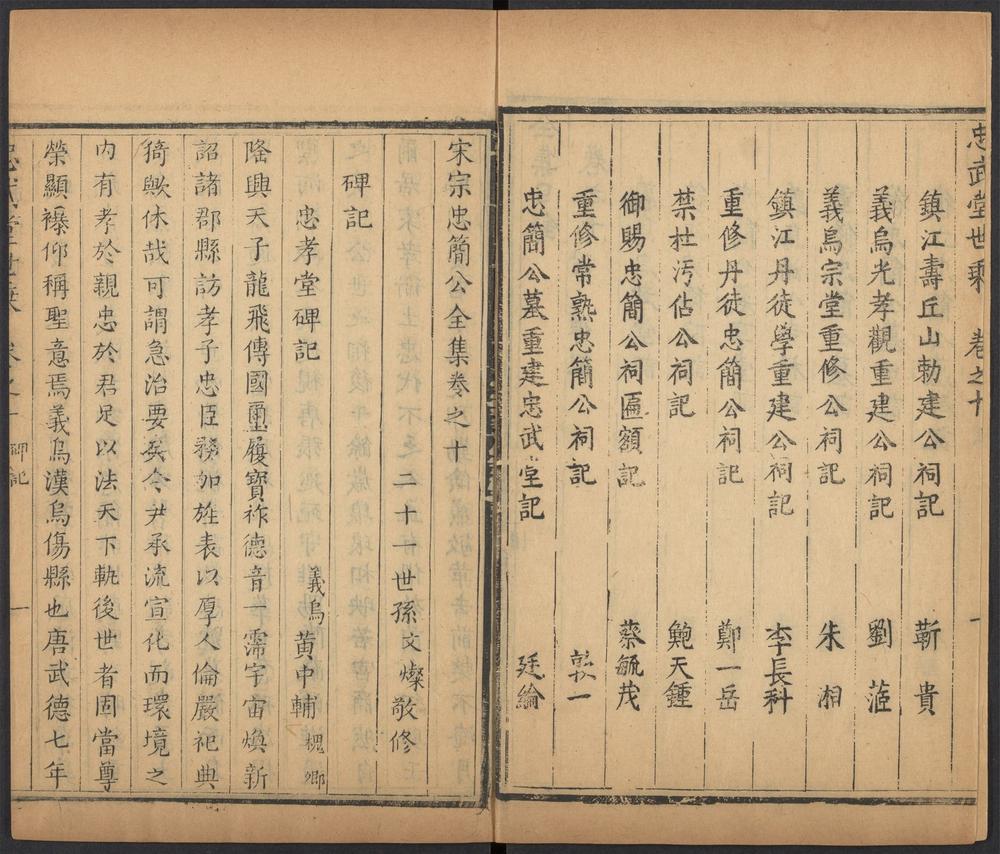 忠武堂世乘 卷之十 一
鎮江壽丘山勅建公祠記 靳貴
義烏光孝觀重建公祠記 劉菃
義烏宗堂重修公祠記 朱湘
鎮江丹徒學重建公祠記 李長科
重修丹徒忠簡公祠記 鄭一岳
禁杜汚佔公祠記 鮑天鍾
御賜忠簡公祠匾額記 蔡毓茂
重修常熟忠簡公祠記 敦一
忠簡公墓重建忠武堂記 廷綸
宋宗忠簡公全集卷之十
二十一世孫文燦敬修
碑記
忠孝堂碑記 義烏黃中輔槐卿
隆興天子龍飛傳國璽履寶祚德音一霈宇宙煥新
詔諸郡縣訪孝子忠臣務加旌表以厚人倫嚴祀典
猗歟休哉可謂急治要矣令尹承流宣化而環境之
內有孝於親忠於君足以法天下軌後世者固當尊
榮顯襮仰稱聖意焉義烏漢烏傷縣也唐武德七年
忠武堂世乘 卷之十 碑記 一